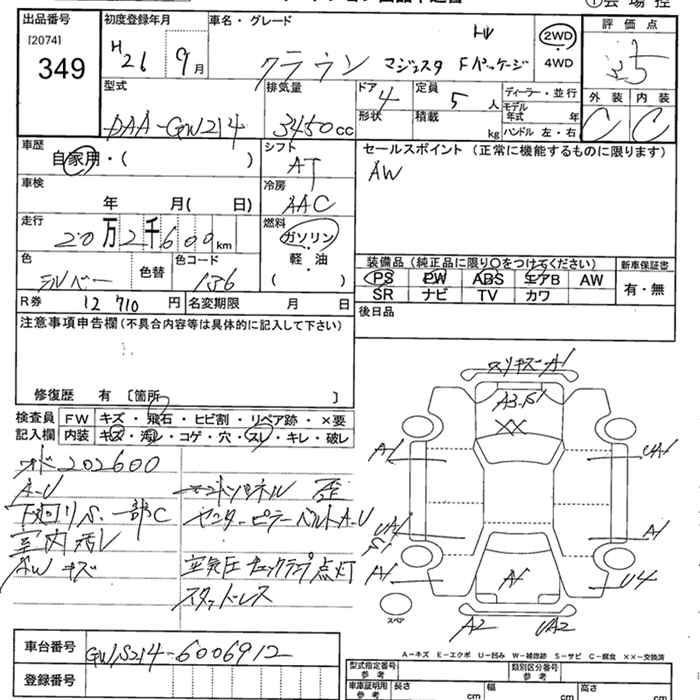 ①会場控
出品番号 初度登録年月 車名・グレード HV 2WD 評価点
[2074]
349 H 21 9月 クラウン マジェスタ Fパッケージ 4WD 3.5
型式 排気量 ドア 定員 ディーラー・並行 外装 内装
4 5人 モデル年式 年
DAA-GWS214 3450cc 形状 積載 kg ハンドル 左・右 C C
車歴 シフト セールスポイント (正常に機能するものに限ります)
自家用・( ) AT AW
車検 年 月( 日) 冷房 AAC
走行 20万2千600km 燃料 ガソリン・軽・油
装備品 (純正品に限り○をつけてください) 新車保証書
色 シルバー 色替 色コード 1F6 ( )
PS PW ABS エアB AW 有・無
SR ナビ TV カワ
R券 12710円 名変期限 月 日 後日品
注意事項申告欄(不具合内容等は具体的に記入して下さい)
修復歴 有 〔箇所 〕
検査員 FW キズ・飛石・ヒビ割・リペア跡・×要
記入欄 内装 キズ・汚レ・コゲ・穴・スレ・キレ・破レ
スリキズ A1
A3
XX
A1
A1
A1
A2
オド202600
A-U
下廻りS 一部C
センターピラーベルトA-U
室内汚レ
AWキズ 空気圧チェックランプ点灯
スタッドレス
スペア
A-キズ E-エクボ U-凹み W-補修跡 S-サビ C-腐食 ××-交換済
車台番号 GWS214-6006912
登録番号
型式指定番号 参考 類別区分番号 参考
車庫証明用 参考 長さ cm 幅 cm 高さ cm